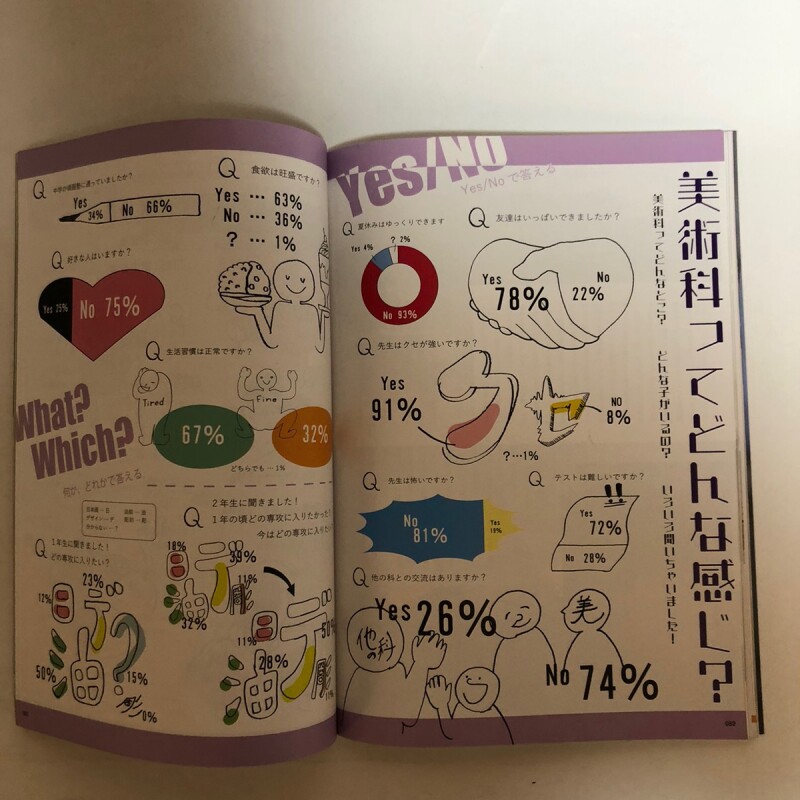 美術科ってどんな感じ?
美術科ってどんなとこ? どんな子がいるの? いろいろ聞いちゃいました!
Yes/No
Yes/No で答える
Q 夏休みはゆっくりできます
Yes 4%
? 2%
No 93%
Q 友達はいっぱいできましたか?
Yes
78%
No
22%
Q 先生はクセが強いですか?
Yes
91%
NO
8%
?…1%
Q 先生は怖いですか?
No
81%
Yes
Q テストは難しいですか?
Yes
72%
No 28%
Q 他の科との交流はありますか?
Yes 26%
他の科
美
No 74%
Q 中学の頃画塾に通っていましたか?
Yes
34%
No 66%
Q 食欲は旺盛ですか?
Yes … 63%
No … 36%
? … 1%
Q 好きな人はいますか?
Yes 25%
No 75%
Q 生活習慣は正常ですか?
Tired
67%
Fine
32%
どちらでも … 1%
What?
Which?
何か、どれかで答える
Q 1年生に聞きました!
どの専攻に入りたい?
12%
日
23%
デ
50%
油
?
15%
彫
0%
Q 2年生に聞きました!
1年の頃どの専攻に入りたかった?
今はどの専攻に入り
18%
日
デ
39%
油
32%
彫
11%
11%
日
デ
50%
油
28%
彫
11%